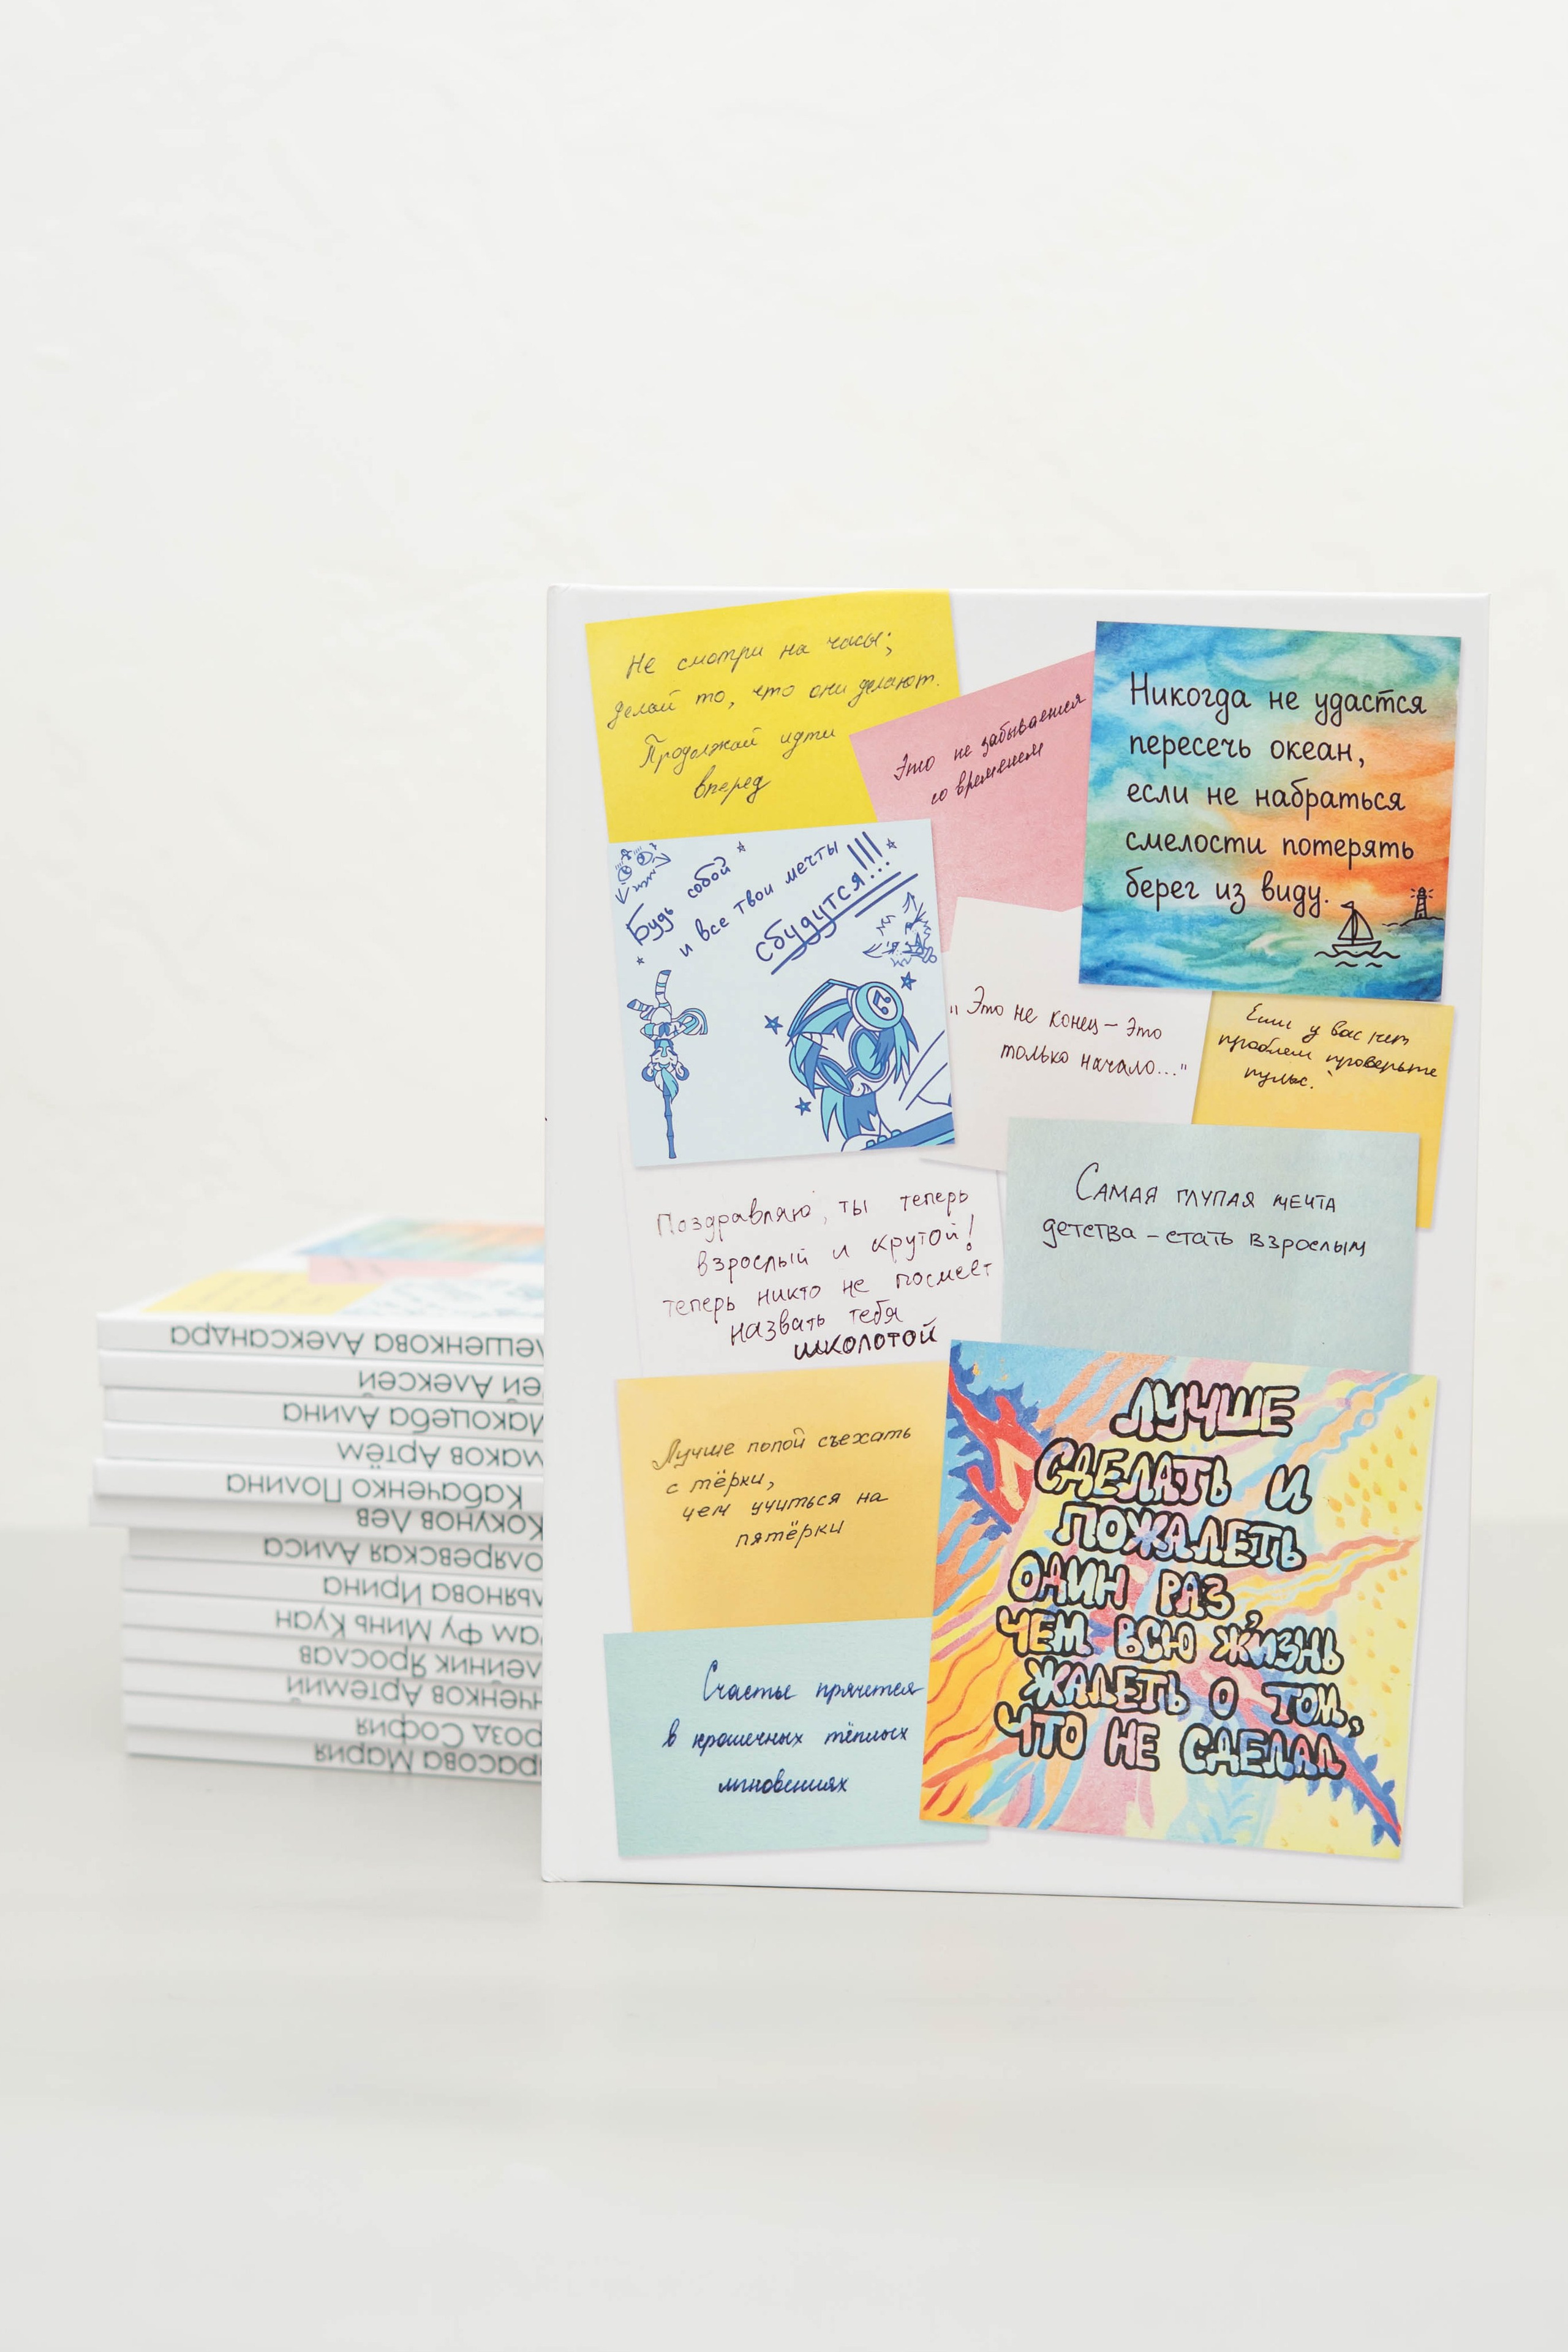 Не смотри на часы;
делай то, что они делают.
Продолжай идти
вперед
Это не забывается
со временем
Никогда не удастся
пересечь океан,
если не набраться
смелости потерять
берег из виду.
Будь собой
и все твои мечты
сбудутся!!!
"Это не конец – это
только начало..."
Если у вас нет
проблем проверьте
пульс.
Поздравляю, ты теперь
взрослый и крутой!
теперь никто не посмеет
назвать тебя
школотой
Самая глупая мечта
детства – стать взрослым
Лучше попой съехать
с тёрки,
чем учиться на
пятёрки
ЛУЧШЕ
СДЕЛАТЬ И
ПОЖАЛЕТЬ
ОДИН РАЗ,
ЧЕМ ВСЮ ЖИЗНЬ
ЖАЛЕТЬ О ТОМ,
ЧТО НЕ СДЕЛАЛ
Счастье прячется
в крошечных тёплых
мгновениях
лешенкова Александра
ей Алексей
Макоцеба Алина
маков Артём
Кабаченко Полина
Кокунов Лев
оляревская Алиса
льянова Ирина
ам Фу Минь Куан
лейник Ярослав
нченков Артемий
розд София
расова Мария